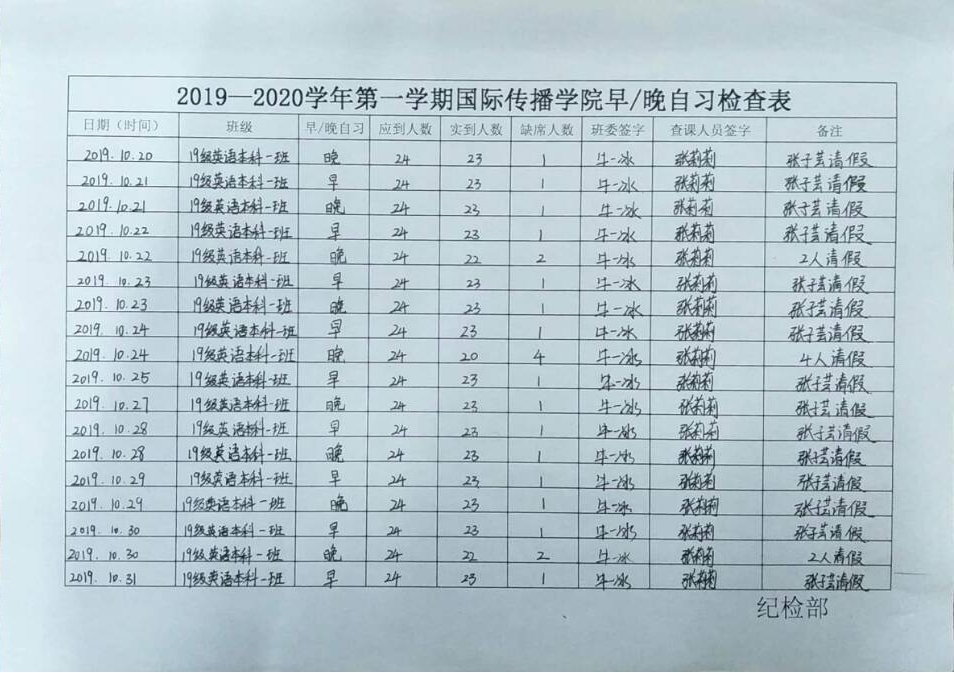 2019—2020学年第一学期国际传播学院早/晚自习检查表
日期（时间） 班级 早/晚自习 应到人数 实到人数 缺席人数 班委签字 查课人员签字 备注
2019.10.20 19级英语本科一班 晚 24 23 1 牛一冰 张莉莉 张子芸请假
2019.10.21 19级英语本科一班 早 24 23 1 牛一冰 张莉莉 张子芸请假
2019.10.21 19级英语本科一班 晚 24 23 1 牛一冰 张莉莉 张子芸请假
2019.10.22 19级英语本科一班 早 24 23 1 牛一冰 张莉莉 张子芸请假
2019.10.22 19级英语本科一班 晚 24 22 2 牛一冰 张莉莉 2人请假
2019.10.23 19级英语本科一班 早 24 23 1 牛一冰 张莉莉 张子芸请假
2019.10.23 19级英语本科一班 晚 24 23 1 牛一冰 张莉莉 张子芸请假
2019.10.24 19级英语本科一班 早 24 23 1 牛一冰 张莉莉 张子芸请假
2019.10.24 19级英语本科一班 晚 24 20 4 牛一冰 张莉莉 4人请假
2019.10.25 19级英语本科一班 早 24 23 1 牛一冰 张莉莉 张子芸请假
2019.10.27 19级英语本科一班 晚 24 23 1 牛一冰 张莉莉 张子芸请假
2019.10.28 19级英语本科一班 早 24 23 1 牛一冰 张莉莉 张子芸请假
2019.10.28 19级英语本科一班 晚 24 23 1 牛一冰 张莉莉 张子芸请假
2019.10.29 19级英语本科一班 早 24 23 1 牛一冰 张莉莉 张子芸请假
2019.10.29 19级英语本科一班 晚 24 23 1 牛一冰 张莉莉 张子芸请假
2019.10.30 19级英语本科一班 早 24 23 1 牛一冰 张莉莉 张子芸请假
2019.10.30 19级英语本科一班 晚 24 22 2 牛一冰 张莉莉 2人请假
2019.10.31 19级英语本科一班 早 24 23 1 牛一冰 张莉莉 张子芸请假
纪检部